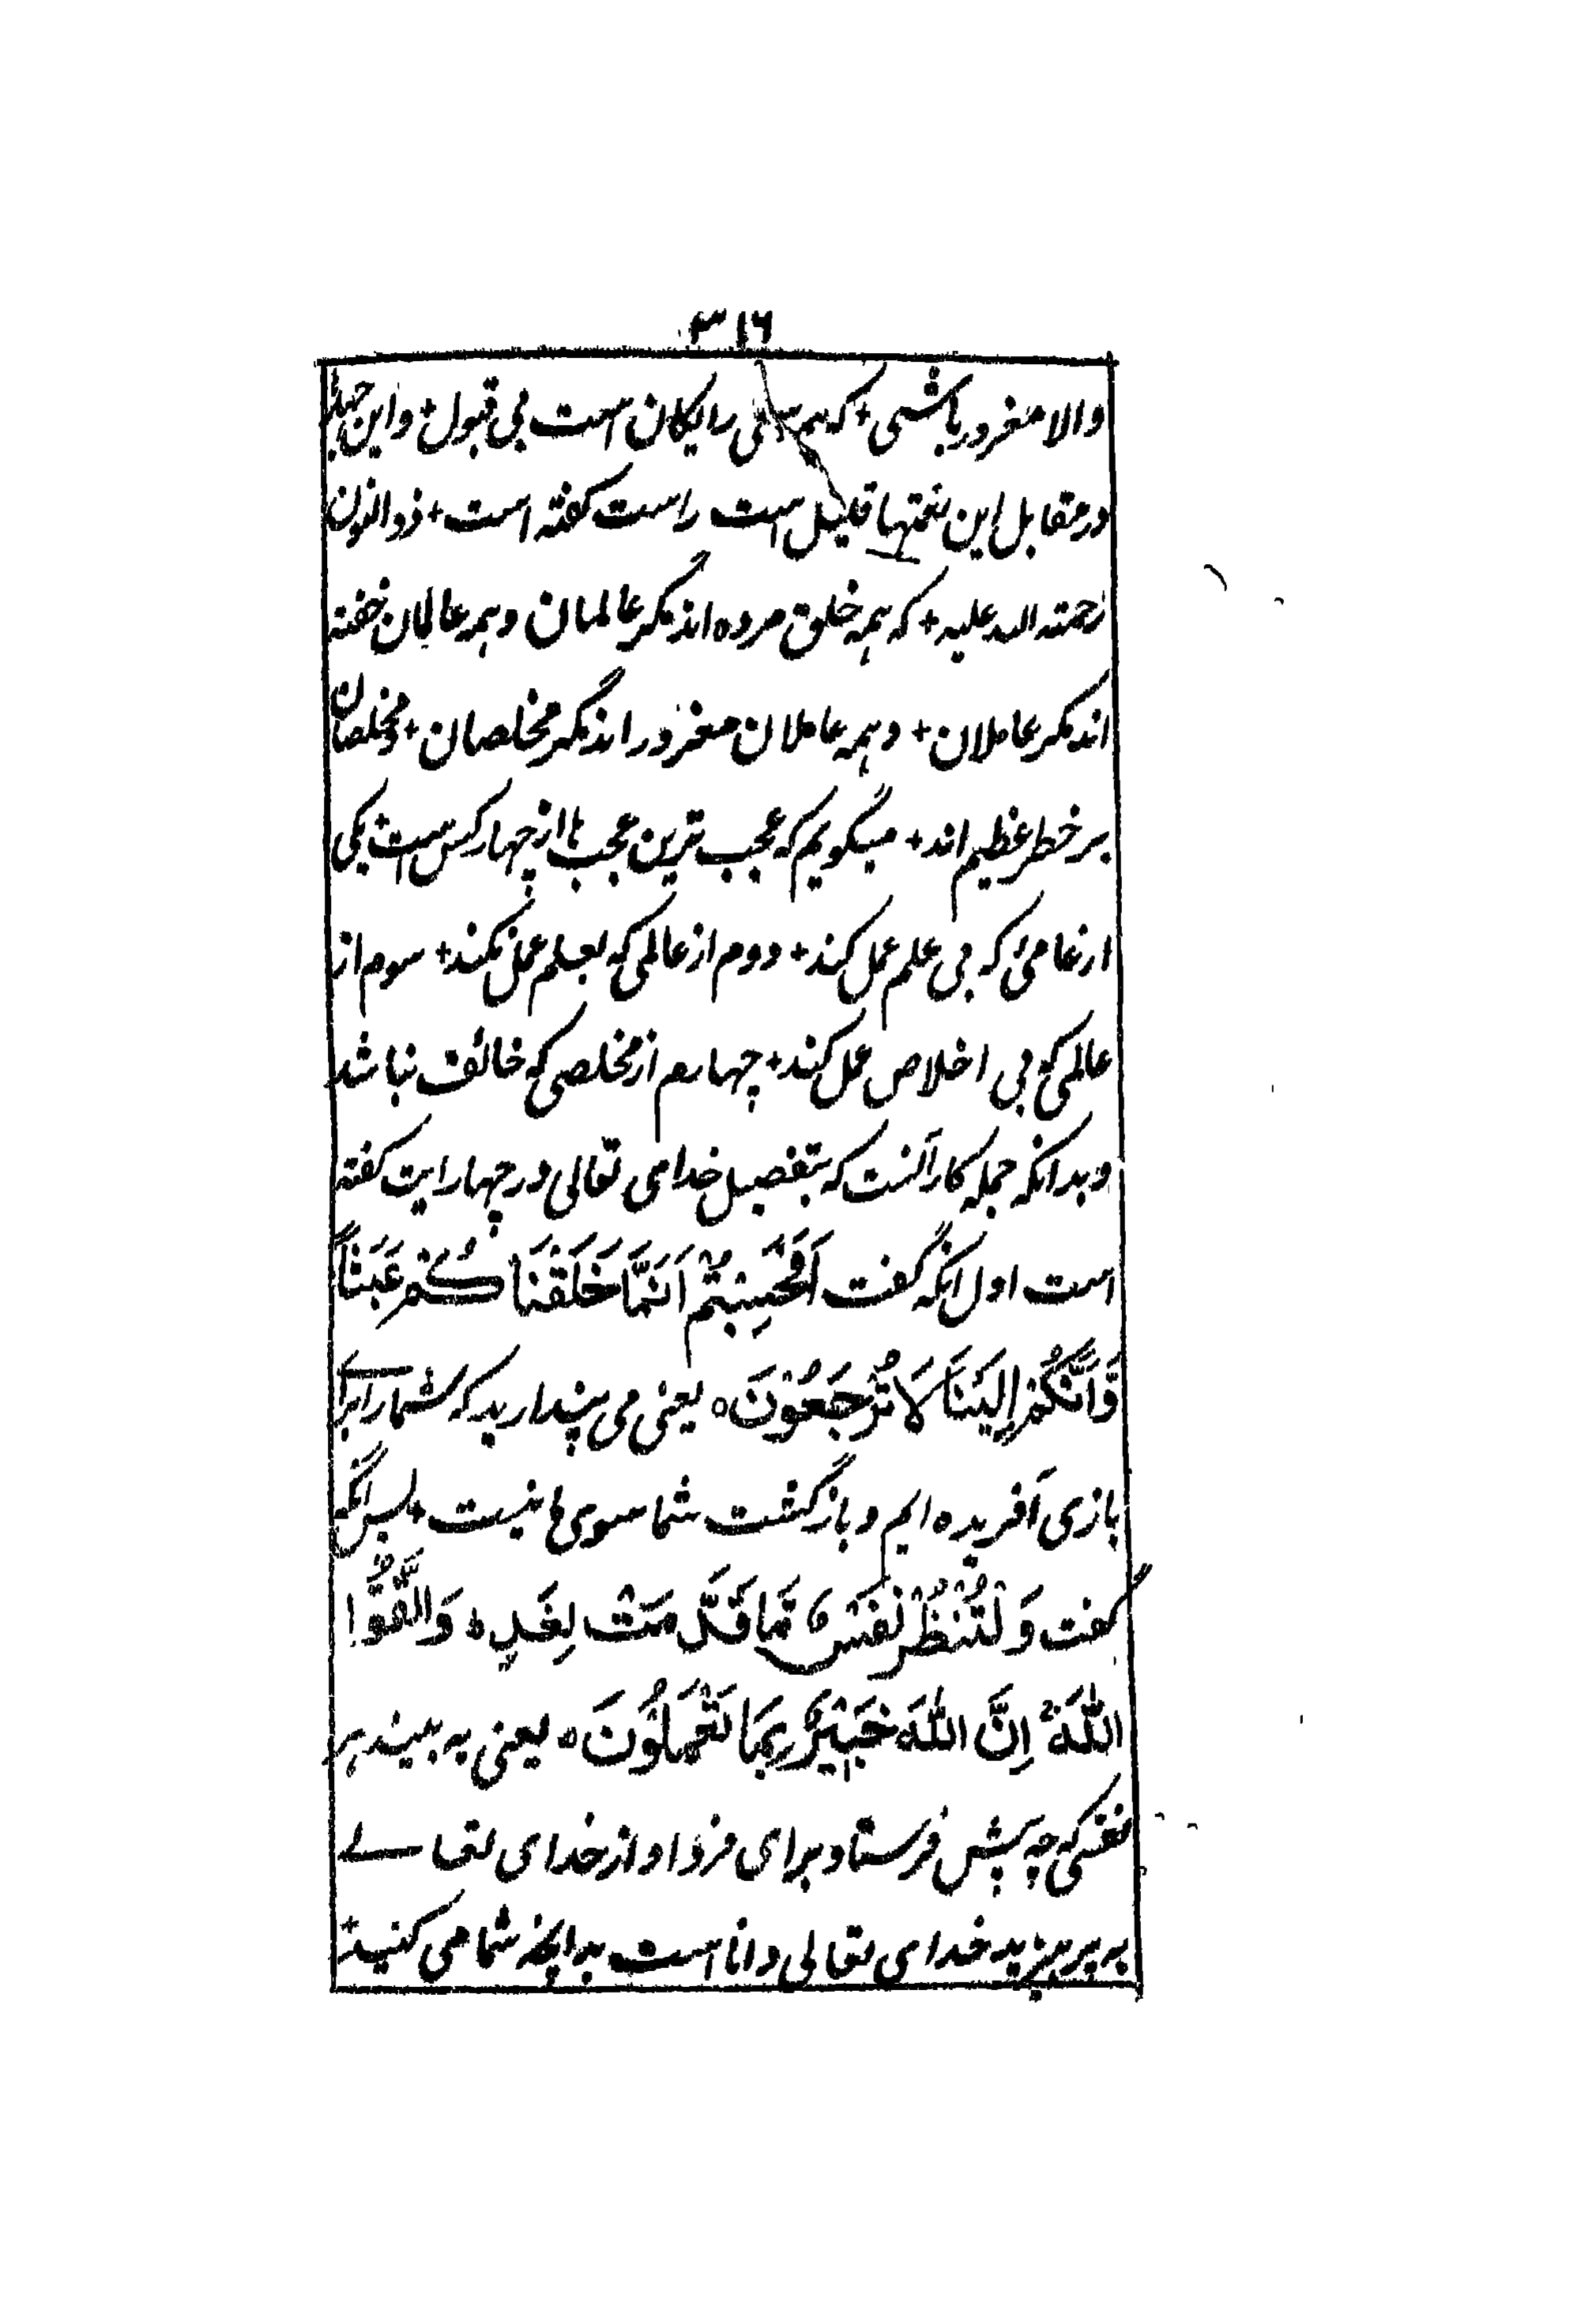 ۳۱۶
والا مغرور باشی + که همه سعی رایکان است بی قبول + و این جمله
در مقابل این نعمتها قلیل است راست کفته است + ذو النون
رحمته الله علیه + که همه خلق مرده اند مگر عالمان و همه عالمان خفته
اند مکر عاملان + و همه عاملان مغرور اند مگر مخلصان + و مخلصان
بر خطر عظیم اند + میگویم که عجب ترین عجب ها از چهار کس است + یکی
از عامئ که بی علم عمل کند + دوم از عالمی که بعلم عمل نکند + سوم از
عالمی که بی اخلاص عمل کند + چهارم از مخلصی که خائف نباشد
و بدانکه جمله کار آنست که بتفصیل خدای تعالی در چهار ایت کفته
است اول انکه گفت اَفَحَسِبْتُمْ اَنَّمَا خَلَقْنَا كُمْ عَبَثًا
وَّاَنَّكُمْ اِلَيْنَا لَا تُرْجَعُوْنَ ه یعنی می پندارید که شما را برای
بازی آفریده ایم و بازگشت شما سوی ما نیست + پس انگه
گفت وَلْتَنْظُرْ نَفْسٌ مَّا قَدَّمَتْ لِغَدٍ ط وَاتَّقُوا
اللّٰهَ ط اِنَّ اللّٰهَ خَبِيْرٌ بِمَا تَعْمَلُوْنَ ه یعنی به بیند هر
نفسی که چه پیش فرستاد برای فردا و از خدای تعالے
به پرهیزید خدای تعالی دانا است بدانچه شما می کنید +